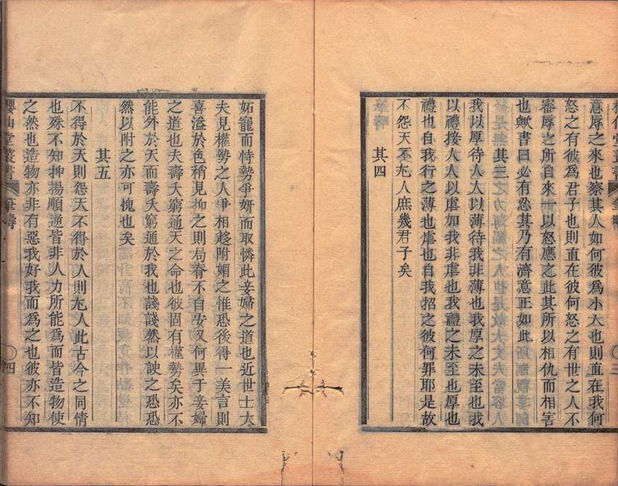 意辱之來也察其人如何彼爲小人也則直在我何
怒之有彼爲君子也則直在彼何怒之有世之人不
審辱之所自來一以怒應之此其所以相仇而相害
也歟書曰必有忍其乃有濟意正如此
其三
我以厚待人人以薄待我非薄也我厚之未至也我
以禮接人人以虐加我非虐也我禮之未至也厚也
禮也自我行之薄也虐也自我招之彼何罪耶是故
不怨天不尤人庶幾君子矣
其四
妬寵而恃勢爭妍而取憐此妾婦之道也近世士大
夫見權勢之人爭相趍附媚之惟恐後得一美言則
喜溢於色稍見抑之則局脊不自安又何異于妾婦
之道也夫壽夭窮通天之命也彼固有權勢矣亦不
能外於天而壽夭窮通於我也諓諓然以諛之恐恐
然以附之亦可愧也矣
其五
不得於天則怨天不得於人則尤人此古今之同情
也殊不知抑揚順逆皆非人力所能爲而皆造物使
之然也造物亦非有惡我好我而爲之也彼亦不知
筆疇
四